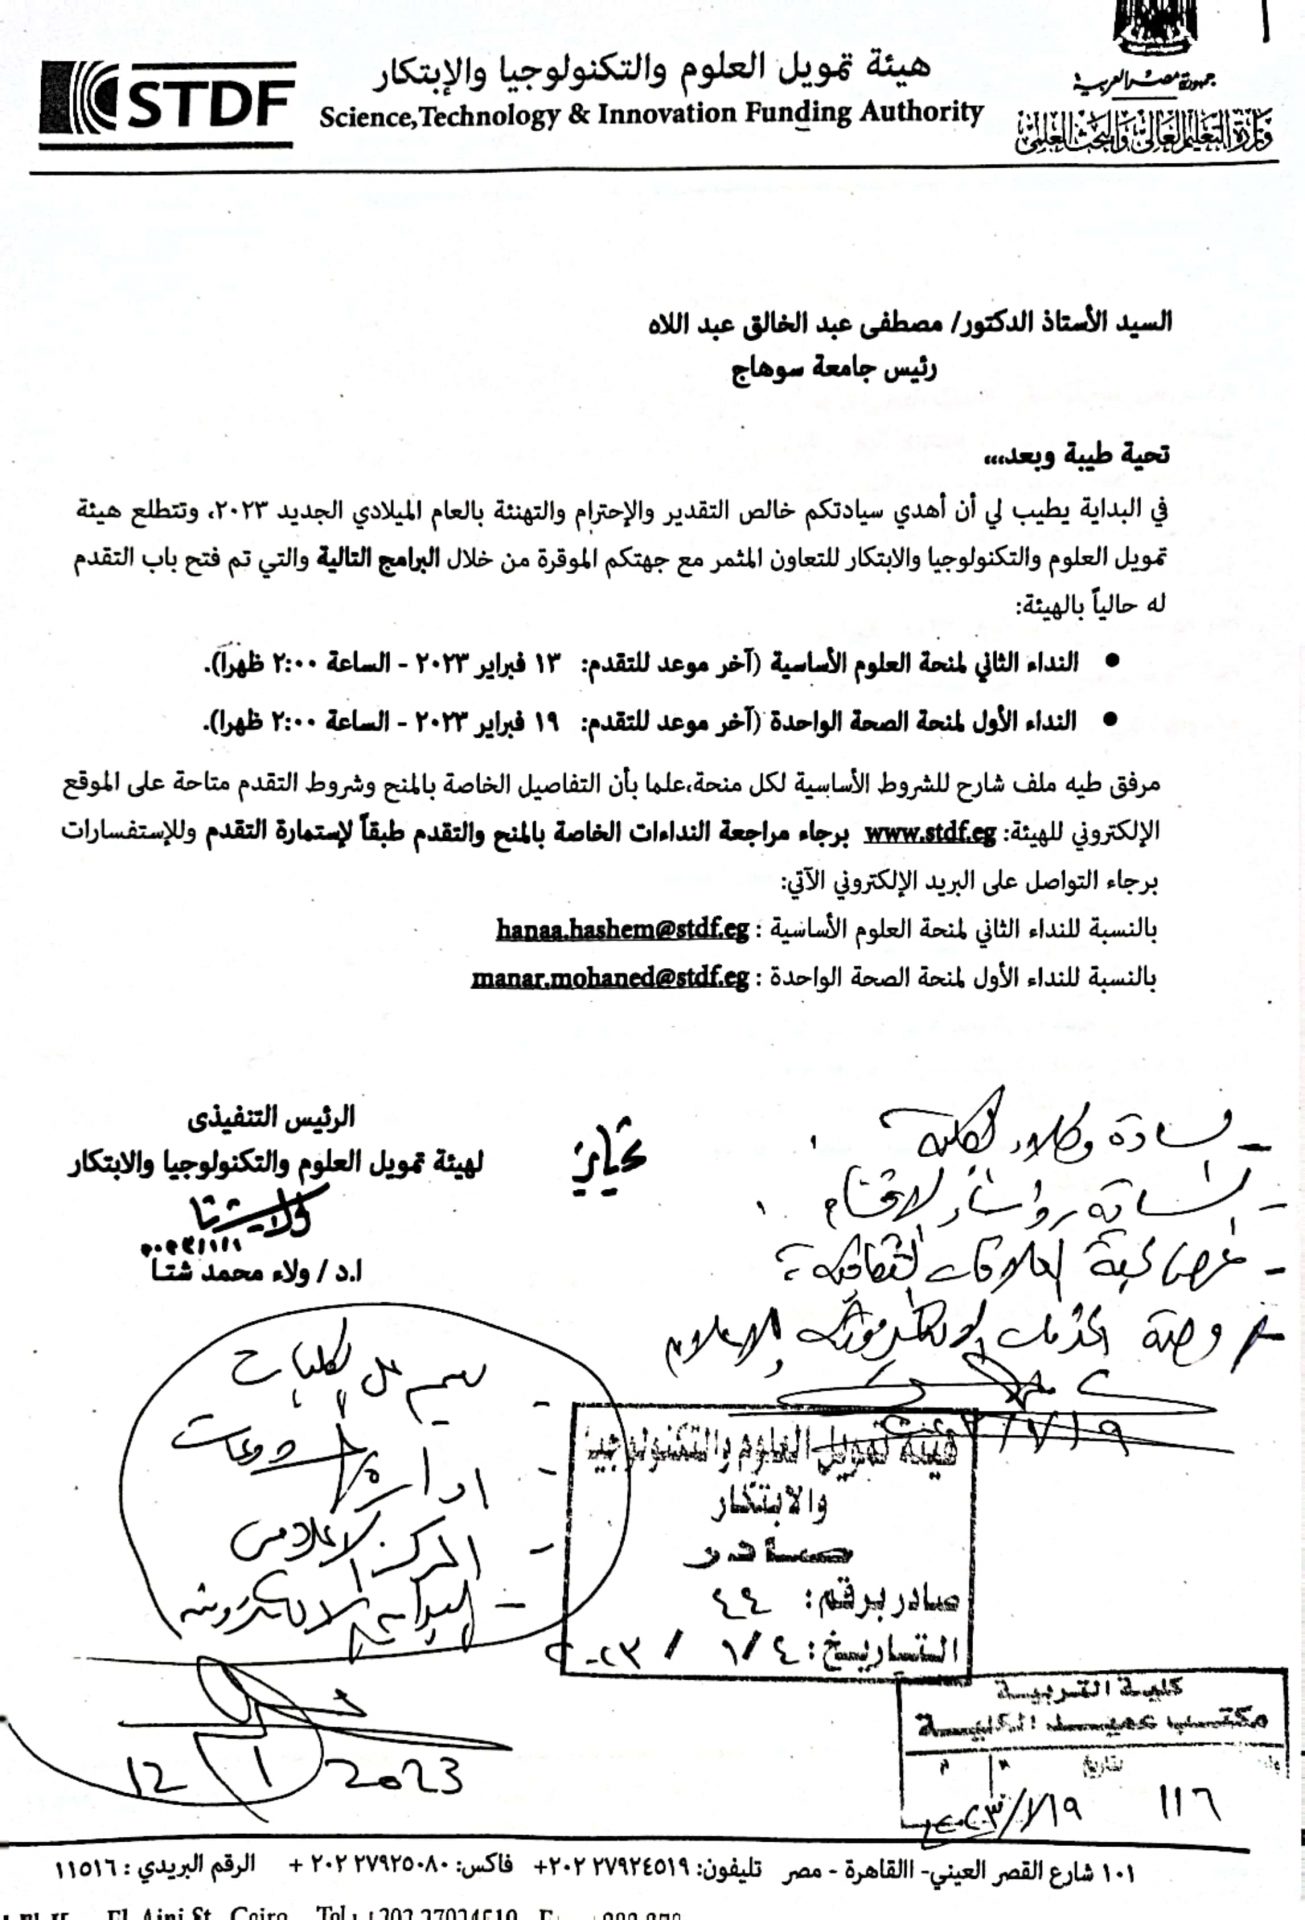 STDF
هيئة تمويل العلوم والتكنولوجيا والإبتكار
Science,Technology & Innovation Funding Authority
جمهورية مصر العربية
وزارة التعليم العالي والبحث العلمي
السيد الأستاذ الدكتور/ مصطفى عبد الخالق عبد اللاه
رئيس جامعة سوهاج
تحية طيبة وبعد،،،
في البداية يطيب لي أن أهدي سيادتكم خالص التقدير والإحترام والتهنئة بالعام الميلادي الجديد ٢٠٢٣، وتتطلع هيئة
تمويل العلوم والتكنولوجيا والابتكار للتعاون المثمر مع جهتكم الموقرة من خلال البرامج التالية والتي تم فتح باب التقدم
له حالياً بالهيئة:
• النداء الثاني لمنحة العلوم الأساسية (آخر موعد للتقدم: ١٣ فبراير ٢٠٢٣ - الساعة ٢:٠٠ ظهراً).
• النداء الأول لمنحة الصحة الواحدة (آخر موعد للتقدم: ١٩ فبراير ٢٠٢٣ - الساعة ٢:٠٠ ظهرا).
مرفق طيه ملف شارح للشروط الأساسية لكل منحة،علما بأن التفاصيل الخاصة بالمنح وشروط التقدم متاحة على الموقع
الإلكتروني للهيئة: www.stdf.eg برجاء مراجعة النداءات الخاصة بالمنح والتقدم طبقاً لإستمارة التقدم وللإستفسارات
برجاء التواصل على البريد الإلكتروني الآتي:
بالنسبة للنداء الثاني لمنحة العلوم الأساسية : hanaa.hashem@stdf.eg
بالنسبة للنداء الأول لمنحة الصحة الواحدة : manar.mohaned@stdf.eg
الرئيس التنفيذى
لهيئة تمويل العلوم والتكنولوجيا والابتكار
ا.د / ولاء محمد شتا
- السادة وكلاء الكلية
- السادة رؤساء الاقسام
- العلاقات الثقافية
- وحدة الخدمات الالكترونية والاعلام
- الكليات
- ادارة المشروعات
- المركز الاعلامى
- البوابة الالكترونية
12 / 1 / 2023
هيئة تمويل العلوم والتكنولوجيا
والابتكار
صادر
صادر برقم: ٤٤
التاريخ: ٤ / ١ / ٢٠٢٣
كلية التربية
مكتب عميد الكلية
بتاريخ
١١٦ ١٩/١/٢٠٢٣
١٠١ شارع القصر العيني- االقاهرة - مصر تليفون: ٢٧٩٢٤٥١٩ ٢٠٢+ فاكس: ٢٧٩٢٥٠٨٠ ٢٠٢ + الرقم البريدي : ١١٥١٦